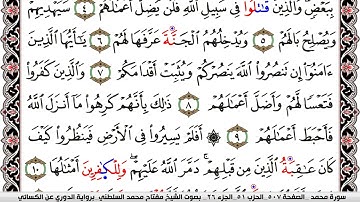 بِبَعْضٍ وَالَّذِينَ قَٰتَلُوا فِي سَبِيلِ اللَّهِ فَلَن يُضِلَّ أَعْمَٰلَهُمْ ٤ سَيَهْدِيهِمْ
وَيُصْلِحُ بَالَهُمْ ٥ وَيُدْخِلُهُمُ الْجَنَّةَ عَرَّفَهَا لَهُمْ ٦ يَٰٓأَيُّهَا الَّذِينَ
ءَامَنُوٓا إِن تَنصُرُوا اللَّهَ يَنصُرْكُمْ وَيُثَبِّتْ أَقْدَامَكُمْ ٧ وَالَّذِينَ كَفَرُوا
فَتَعْسًا لَّهُمْ وَأَضَلَّ أَعْمَٰلَهُمْ ٨ ذَٰلِكَ بِأَنَّهُمْ كَرِهُوا مَآ أَنزَلَ اللَّهُ
فَأَحْبَطَ أَعْمَٰلَهُمْ ٩ أَفَلَمْ يَسِيرُوا فِي الْأَرْضِ فَيَنظُرُوا كَيْفَ
كَانَ عَٰقِبَةُ الَّذِينَ مِن قَبْلِهِمْ دَمَّرَ اللَّهُ عَلَيْهِمْ وَلِلْكَٰفِرِينَ أَمْثَٰلُهَا ١٠
سورة محمد الصفحة ٥٠٧ الحزب ٥١ الجزء ٢٦ بصوت الشيخ مفتاح محمد السلطني برواية الدوري عن الكسائي